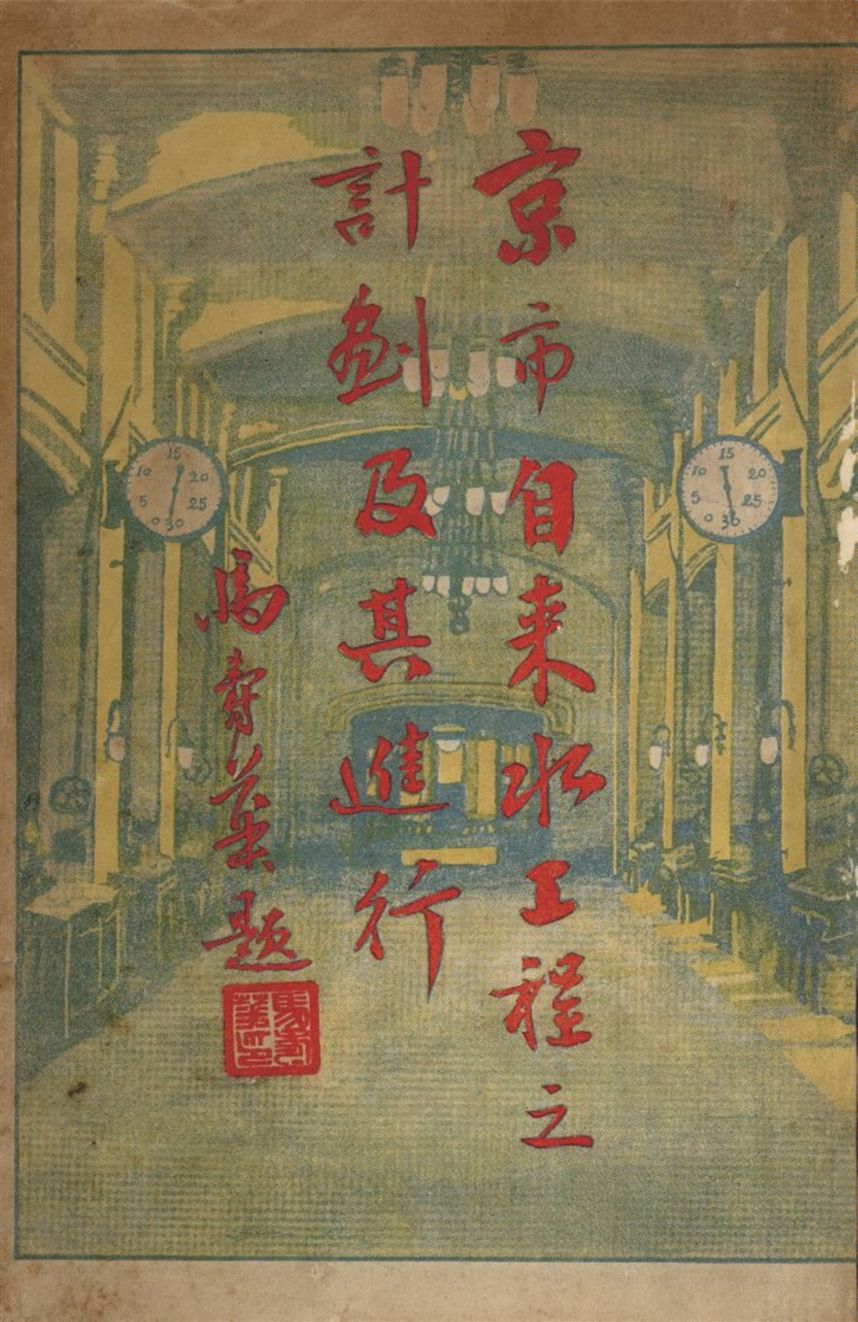 京市自来水工程之
計劃及其進行
馬壽華題
馬壽華印
0 5 10 15 20 25 30
0 5 10 15 20 25 30